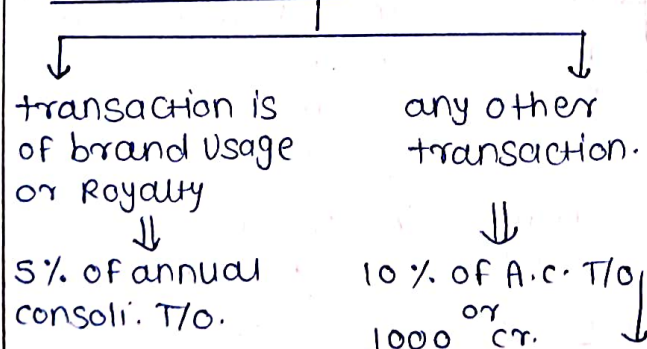 transaction is
of brand usage
or Royalty
5% of annual
consoli. T/O.
any other
transaction.
10% of A.C. T/O
or
1000 cr.